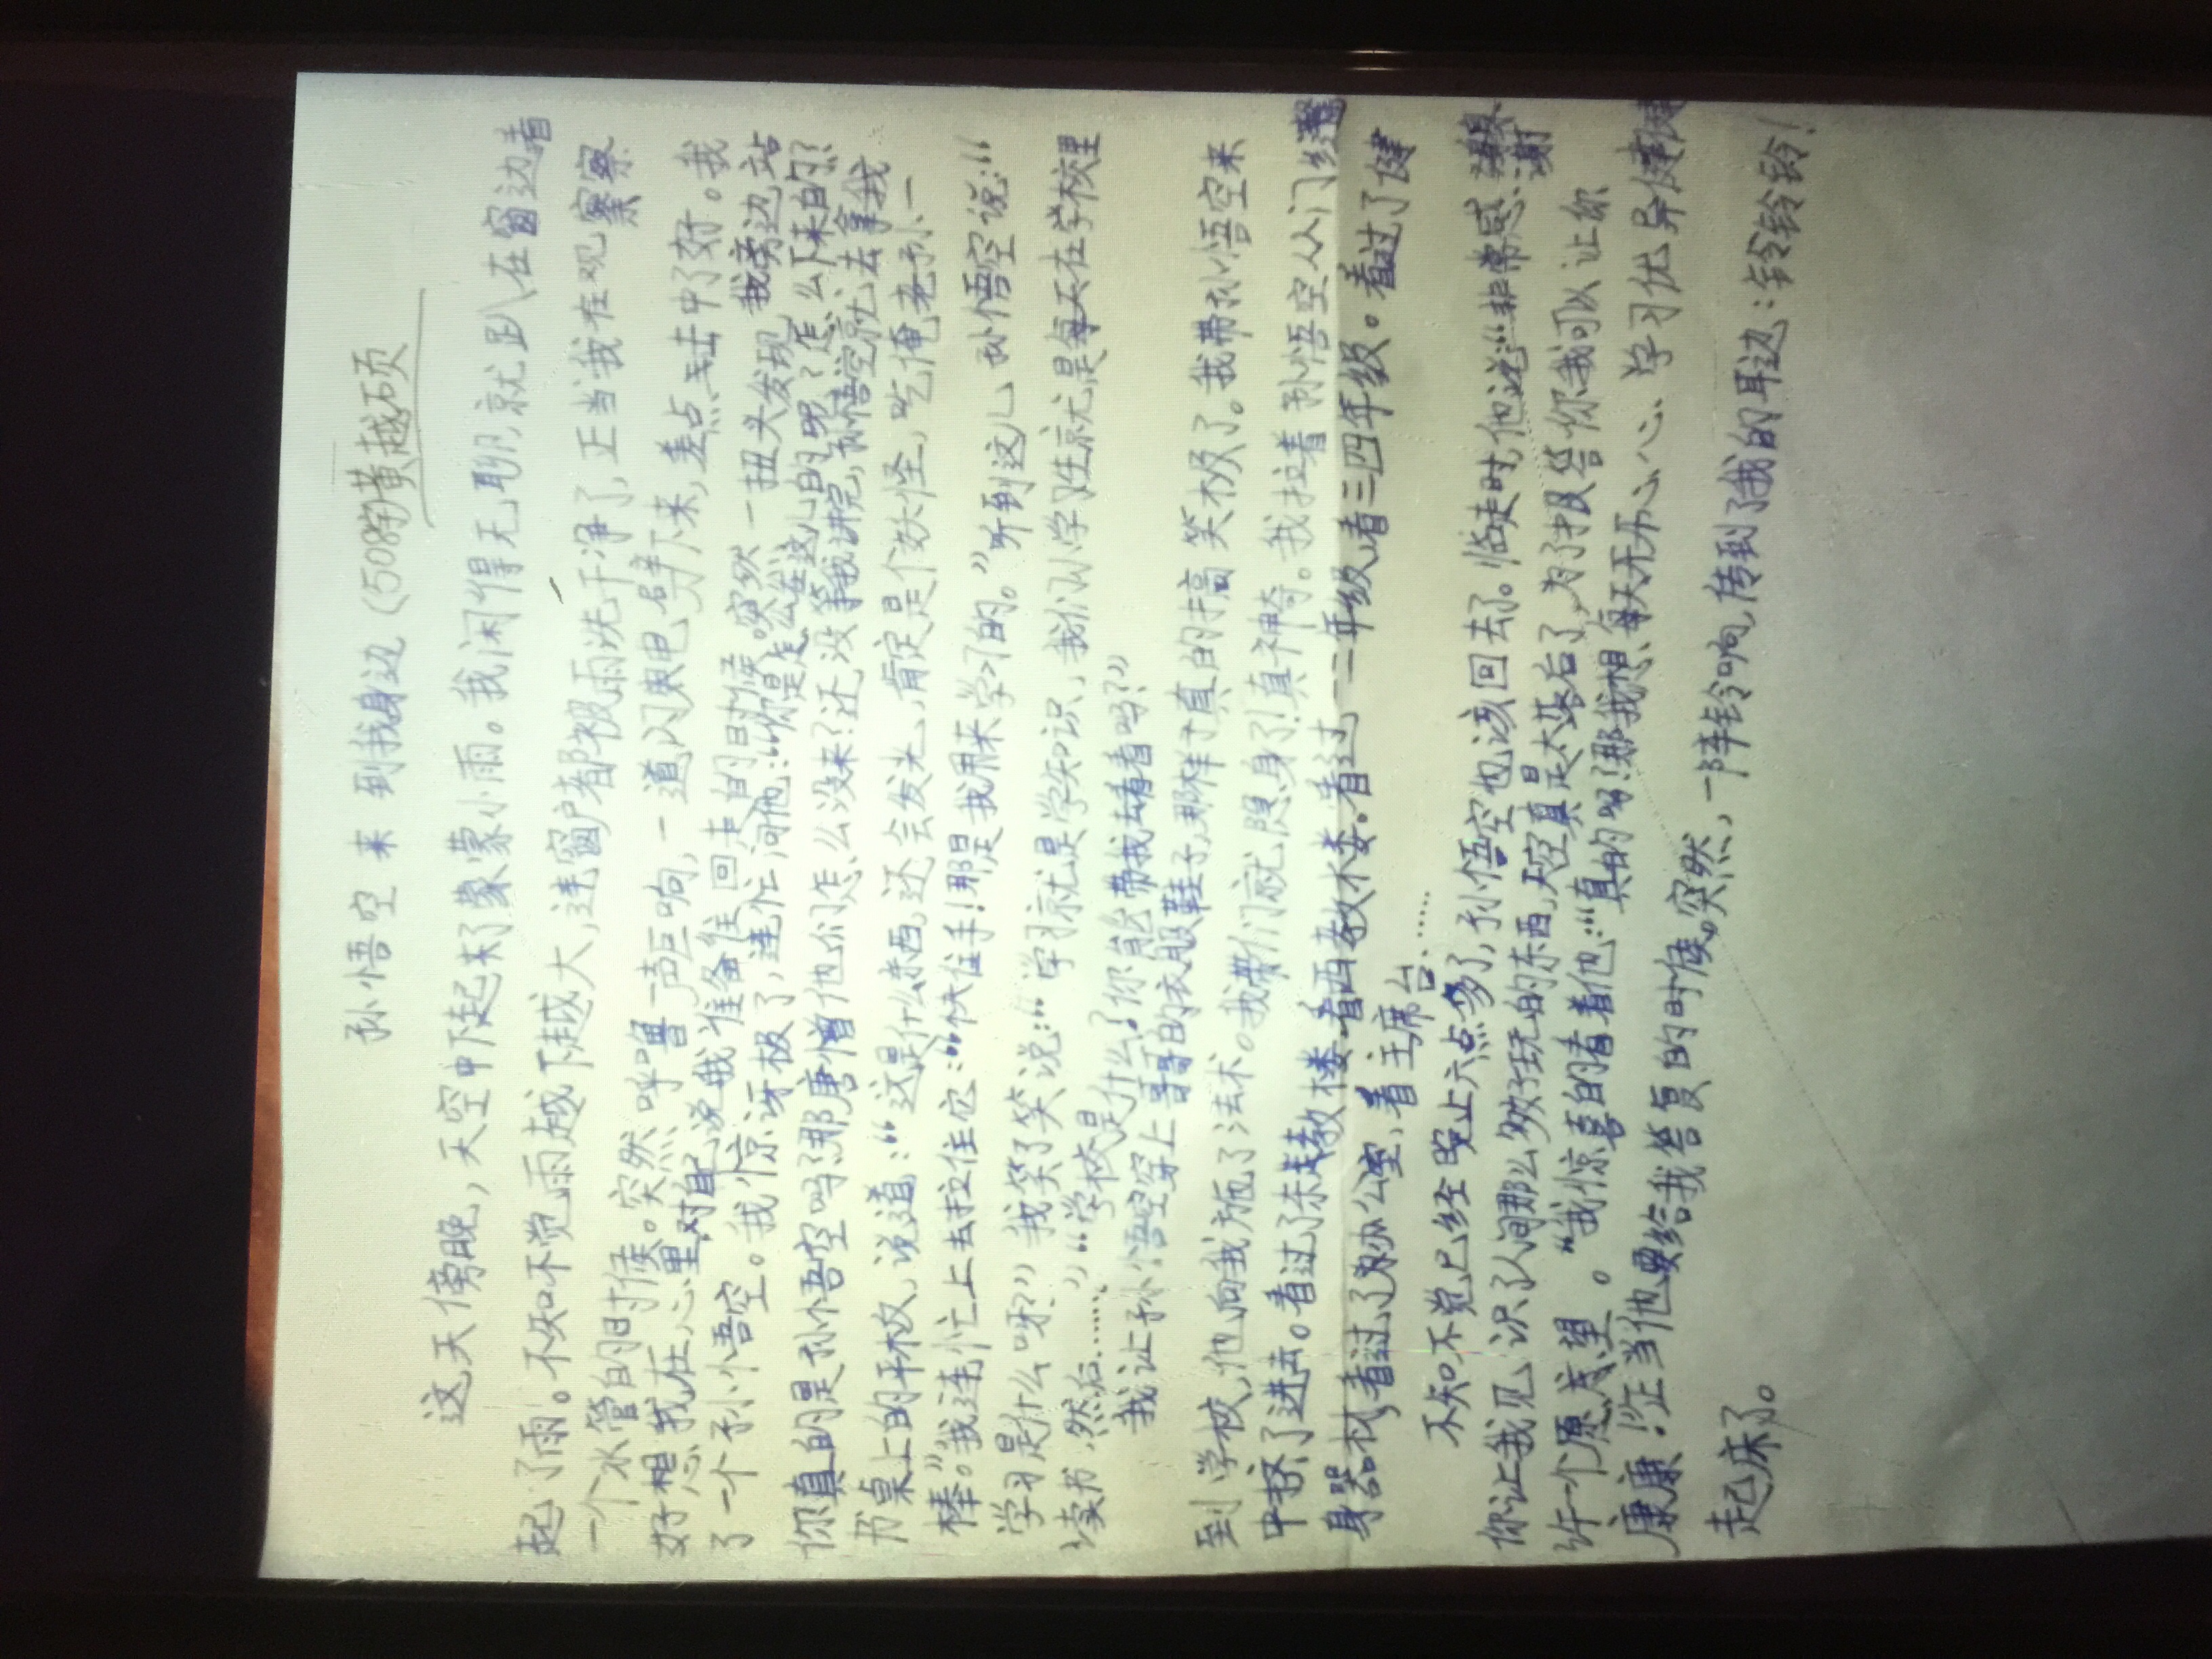 孙悟空来到我身边 (508黄越硕
这天傍晚，天空中下起来了蒙蒙小雨。我闲得无聊，就趴在窗边看
起了雨。不知不觉雨越下越大，连窗户都被雨洗干净了，正当我在观察
一个水管的时候。突然呼噜一声巨响，一道闪电劈下来，差点击中了对。我
好想我在心里对自己说我准备往回走的时候突然一扭头发现我旁边站
了一个孙悟空。我惊讶极了，连忙问他：“你是怎么在这儿的呢？怎么下来的？
你真的是孙悟空吗？那唐僧他们怎么没来？还没等我讲完，孙悟空就去拿我
书桌上的平板，说道：“这是什么东西，还会发光，肯定是个妖怪，吃俺老孙一
棒。”我连忙上去拉住它：“快住手！那是我用来学习的。”听到这儿孙悟空说：“
学习是什么呀？”我笑了笑说：“学习就是学知识，我们小学生就是每天在学校里
读书，然后……”“学校是什么？你能带我去看看吗？”
我让孙悟空穿上哥哥的衣服鞋子，那样子真的搞笑极了。我带孙悟空来
到学校，他向我施了法术。我们就隐身了！真神奇。我拉着孙悟空从门缝
中挤了进去。看过了东教楼看西教楼。看过一二年级看三四年级。看过了健
身器材，看过了办公室，看主席台……
不知不觉已经晚上六点多了，孙悟空也该回去了。临走时他说：“非常感谢
你让我见识了人间那么多好玩的东西，天空真是太落后了，为了报答你我可以让你
许一个愿望。“我惊喜的看着他：“真的吗？那我想每天开开心心、学习优异健健
康康！”正当他要给我答复的时候。突然，一阵铃响传到了我的耳边：铃铃铃！
起床了。